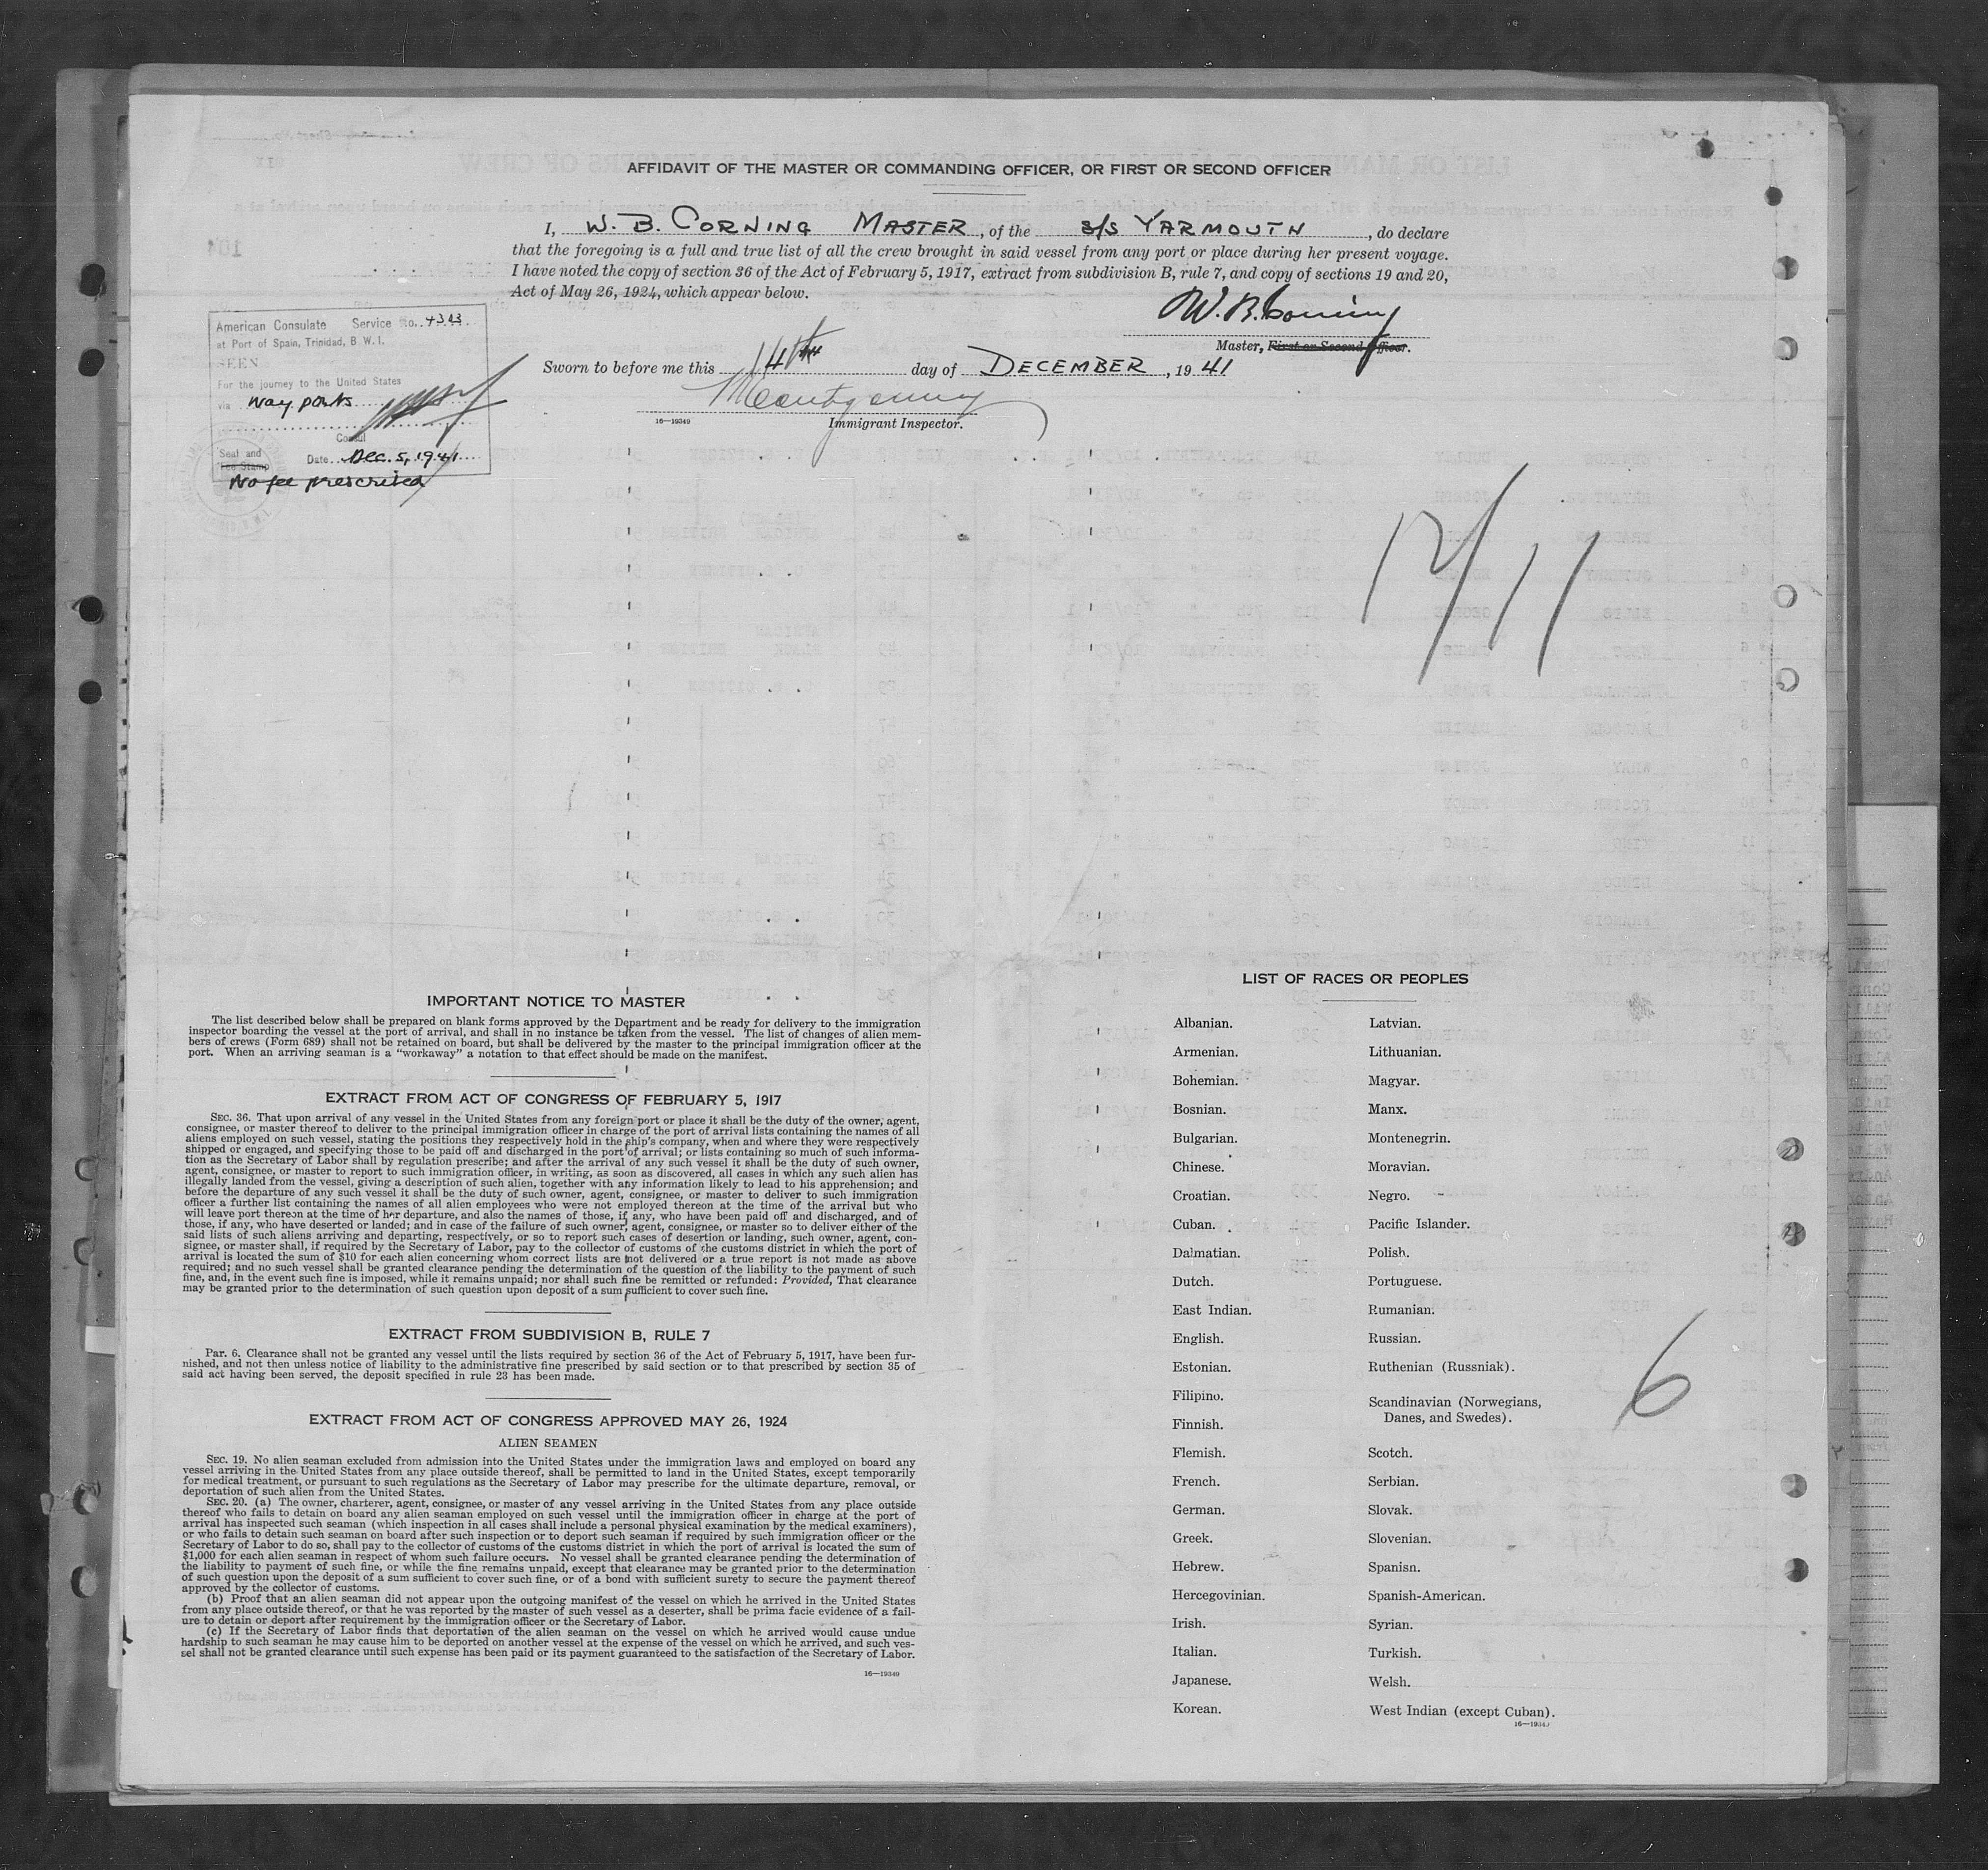 AFFIDAVIT OF THE MASTER OR COMMANDING OFFICER, OR FIRST OR SECOND OFFICER
I, W. B. CORNING MASTER, of the S/S YARMOUTH, do declare
that the foregoing is a full and true list of all the crew brought in said vessel from any port or place during her present voyage.
I have noted the copy of section 36 of the Act of February 5, 1917, extract from subdivision B, rule 7, and copy of sections 19 and 20,
Act of May 26, 1924, which appear below.
W. B. Corning
Master, First or Second Officer.
Sworn to before me this 14th day of DECEMBER, 1941
Montgomery
16—19349 Immigrant Inspector.
American Consulate Service No. 4313
at Port of Spain, Trinidad, B. W. I.
SEEN
For the journey to the United States
via way ports
Consul
Seal and
Fee Stamp Date Dec. 5, 1941
No fee prescribed
12/11
IMPORTANT NOTICE TO MASTER
The list described below shall be prepared on blank forms approved by the Department and be ready for delivery to the immigration
inspector boarding the vessel at the port of arrival, and shall in no instance be taken from the vessel. The list of changes of alien mem-
bers of crews (Form 689) shall not be retained on board, but shall be delivered by the master to the principal immigration officer at the
port. When an arriving seaman is a "workaway" a notation to that effect should be made on the manifest.
EXTRACT FROM ACT OF CONGRESS OF FEBRUARY 5, 1917
SEC. 36. That upon arrival of any vessel in the United States from any foreign port or place it shall be the duty of the owner, agent,
consignee, or master thereof to deliver to the principal immigration officer in charge of the port of arrival lists containing the names of all
aliens employed on such vessel, stating the positions they respectively hold in the ship's company, when and where they were respectively
shipped or engaged, and specifying those to be paid off and discharged in the port of arrival; or lists containing so much of such informa-
tion as the Secretary of Labor shall by regulation prescribe; and after the arrival of any such vessel it shall be the duty of such owner,
agent, consignee, or master to report to such immigration officer, in writing, as soon as discovered, all cases in which any such alien has
illegally landed from the vessel, giving a description of such alien, together with any information likely to lead to his apprehension; and
before the departure of any such vessel it shall be the duty of such owner, agent, consignee, or master to deliver to such immigration
officer a further list containing the names of all alien employees who were not employed thereon at the time of the arrival but who
will leave port thereon at the time of her departure, and also the names of those, if any, who have been paid off and discharged, and of
those, if any, who have deserted or landed; and in case of the failure of such owner, agent, consignee, or master so to deliver either of the
said lists of such aliens arriving and departing, respectively, or so to report such cases of desertion or landing, such owner, agent, con-
signee, or master shall, if required by the Secretary of Labor, pay to the collector of customs of the customs district in which the port of
arrival is located the sum of $10 for each alien concerning whom correct lists are not delivered or a true report is not made as above
required; and no such vessel shall be granted clearance pending the determination of the question of the liability to the payment of such
fine, and, in the event such fine is imposed, while it remains unpaid; nor shall such fine be remitted or refunded: Provided, That clearance
may be granted prior to the determination of such question upon deposit of a sum sufficient to cover such fine.
EXTRACT FROM SUBDIVISION B, RULE 7
PAR. 6. Clearance shall not be granted any vessel until the lists required by section 36 of the Act of February 5, 1917, have been fur-
nished, and not then unless notice of liability to the administrative fine prescribed by said section or to that prescribed by section 35 of
said act having been served, the deposit specified in rule 23 has been made.
EXTRACT FROM ACT OF CONGRESS APPROVED MAY 26, 1924
ALIEN SEAMEN
SEC. 19. No alien seaman excluded from admission into the United States under the immigration laws and employed on board any
vessel arriving in the United States from any place outside thereof, shall be permitted to land in the United States, except temporarily
for medical treatment, or pursuant to such regulations as the Secretary of Labor may prescribe for the ultimate departure, removal, or
deportation of such alien from the United States.
SEC. 20. (a) The owner, charterer, agent, consignee, or master of any vessel arriving in the United States from any place outside
thereof who fails to detain on board any alien seaman employed on such vessel until the immigration officer in charge at the port of
arrival has inspected such seaman (which inspection in all cases shall include a personal physical examination by the medical examiners),
or who fails to detain such seaman on board after such inspection or to deport such seaman if required by such immigration officer or the
Secretary of Labor to do so, shall pay to the collector of customs of the customs district in which the port of arrival is located the sum of
$1,000 for each alien seaman in respect of whom such failure occurs. No vessel shall be granted clearance pending the determination of
the liability to payment of such fine, or while the fine remains unpaid, except that clearance may be granted prior to the determination
of such question upon the deposit of a sum sufficient to cover such fine, or of a bond with sufficient surety to secure the payment thereof
approved by the collector of customs.
(b) Proof that an alien seaman did not appear upon the outgoing manifest of the vessel on which he arrived in the United States
from any place outside thereof, or that he was reported by the master of such vessel as a deserter, shall be prima facie evidence of a fail-
ure to detain or deport after requirement by the immigration officer or the Secretary of Labor.
(c) If the Secretary of Labor finds that deportation of the alien seaman on the vessel on which he arrived would cause undue
hardship to such seaman he may cause him to be deported on another vessel at the expense of the vessel on which he arrived, and such ves-
sel shall not be granted clearance until such expense has been paid or its payment guaranteed to the satisfaction of the Secretary of Labor.
16—19349
LIST OF RACES OR PEOPLES
Albanian.
Armenian.
Bohemian.
Bosnian.
Bulgarian.
Chinese.
Croatian.
Cuban.
Dalmatian.
Dutch.
East Indian.
English.
Estonian.
Filipino.
Finnish.
Flemish.
French.
German.
Greek.
Hebrew.
Hercegovinian.
Irish.
Italian.
Japanese.
Korean.
Latvian.
Lithuanian.
Magyar.
Manx.
Montenegrin.
Moravian.
Negro.
Pacific Islander.
Polish.
Portuguese.
Rumanian.
Russian.
Ruthenian (Russniak).
Scandinavian (Norwegians,
Danes, and Swedes).
Scotch.
Serbian.
Slovak.
Slovenian.
Spanish.
Spanish-American.
Syrian.
Turkish.
Welsh.
West Indian (except Cuban).
16—19349
6